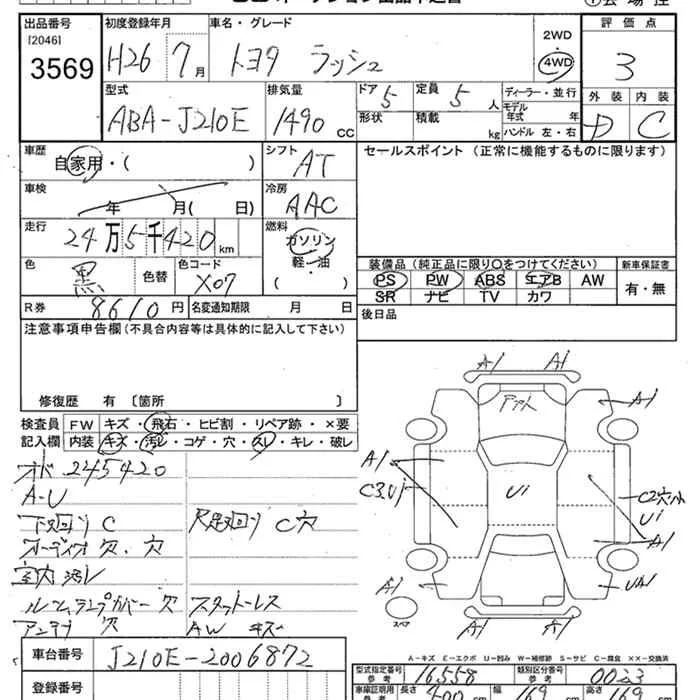 出品番号
[2046]
3569
初度登録年月
H26 7月
車名・グレード
トヨタ ラッシュ
2WD
・
4WD
評価点
3
外装 内装
D C
型式
ABA-J210E
排気量
1490 CC
ドア 5
定員 5 人
形状
積載 kg
ディーラー・並行
モデル
年式 年
ハンドル 左・右
車歴
自家用・( )
シフト
AT
セールスポイント (正常に機能するものに限ります)
車検
年 月( 日)
冷房
AAC
走行
24万5千420km
燃料
ガソリン
軽・油
( )
色
黒
色替
色コード
X07
装備品 (純正品に限り○をつけてください)
新車保証書
PS PW ABS エアB AW
有・無
SR ナビ TV カワ
R券
8610円
名変通知期限 月 日
後日品
注意事項申告欄 (不具合内容等は具体的に記入して下さい)
修復歴 有 〔箇所 〕
検査員
記入欄
FW キズ・飛石・ヒビ割・リペア跡・×要
内装 キズ・汚レ・コゲ・穴・スレ・キレ・破レ
オド 245420
A-U
下廻り C
オーディオ穴、穴
室内汚レ
ルームランプカバー穴
アンテナ 穴
尺足廻り C穴
スタットレス
AW キズ
A1 A1
A1
A1
Ui
Ui
A1
A1
UA1
A1 A1
スペア
A-キズ E-エクボ U-凹み W-補修跡 S-サビ C-腐食 ××-交換済
車台番号
J210E-2006872
登録番号
型式指定番号
参考
16558
類別区分番号
参考
車庫証明用
参考
長さ 400 cm
幅 169 cm
高さ 169 cm